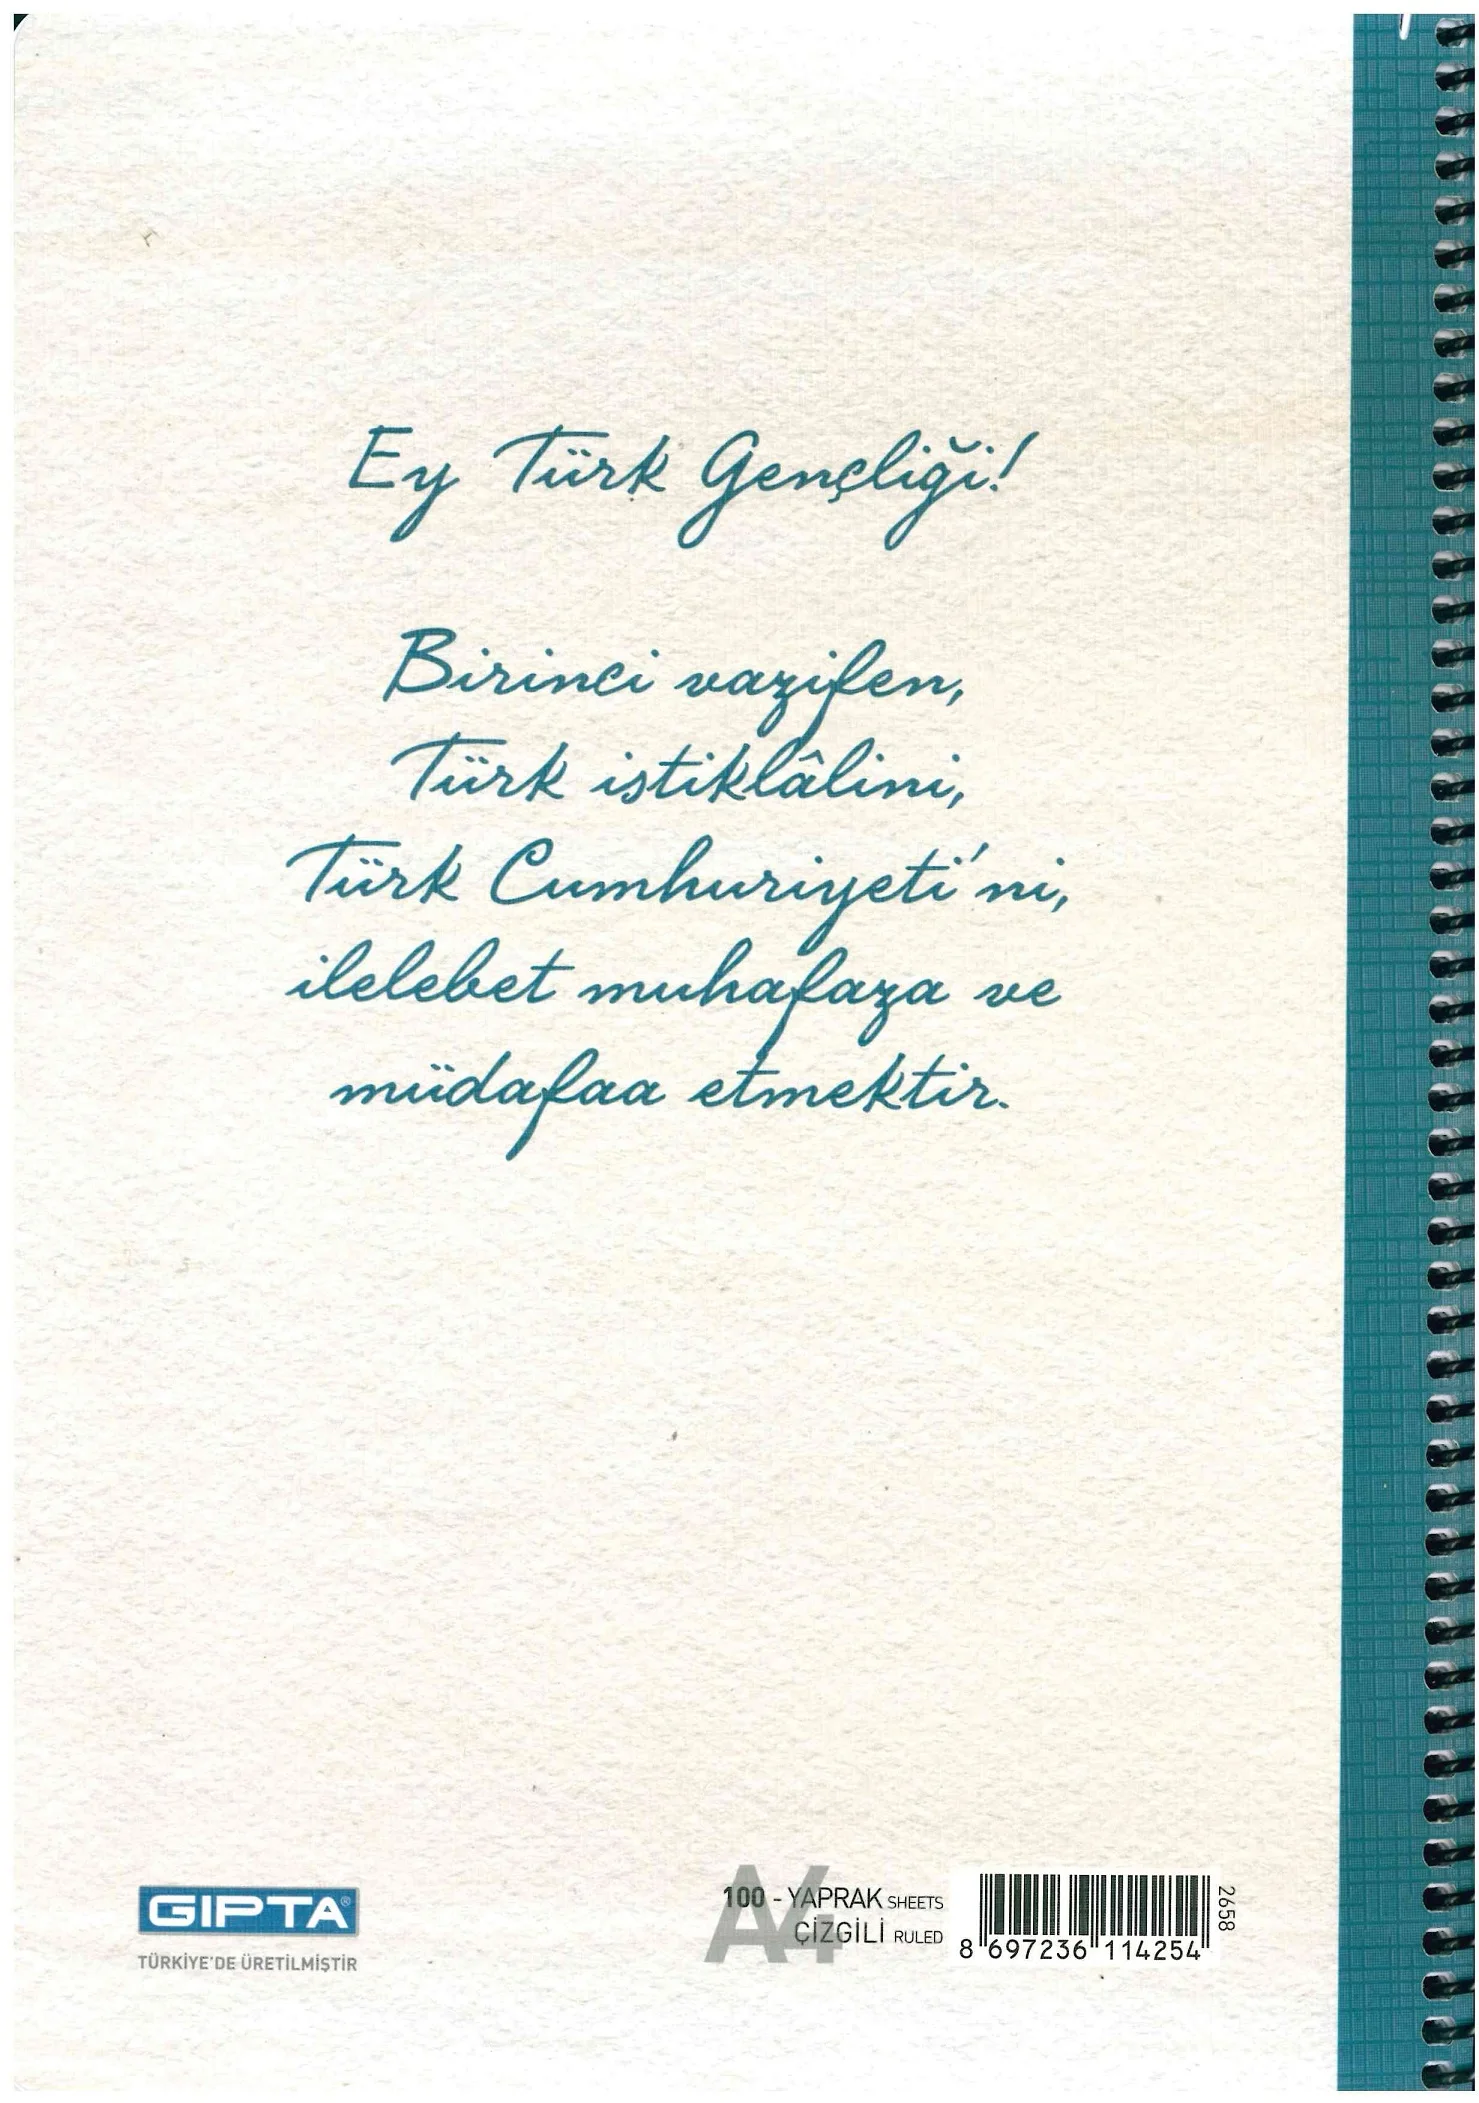 Ey Türk Gençliği!
Birinci vazifen,
Türk istiklâlini,
Türk Cumhuriyeti'ni,
ilelebet muhafaza ve
müdafaa etmektir.
GIPTA®
TÜRKİYE'DE ÜRETİLMİŞTİR
A4
100 - YAPRAK SHEETS
ÇİZGİLİ RULED
8 697236 114254
2658